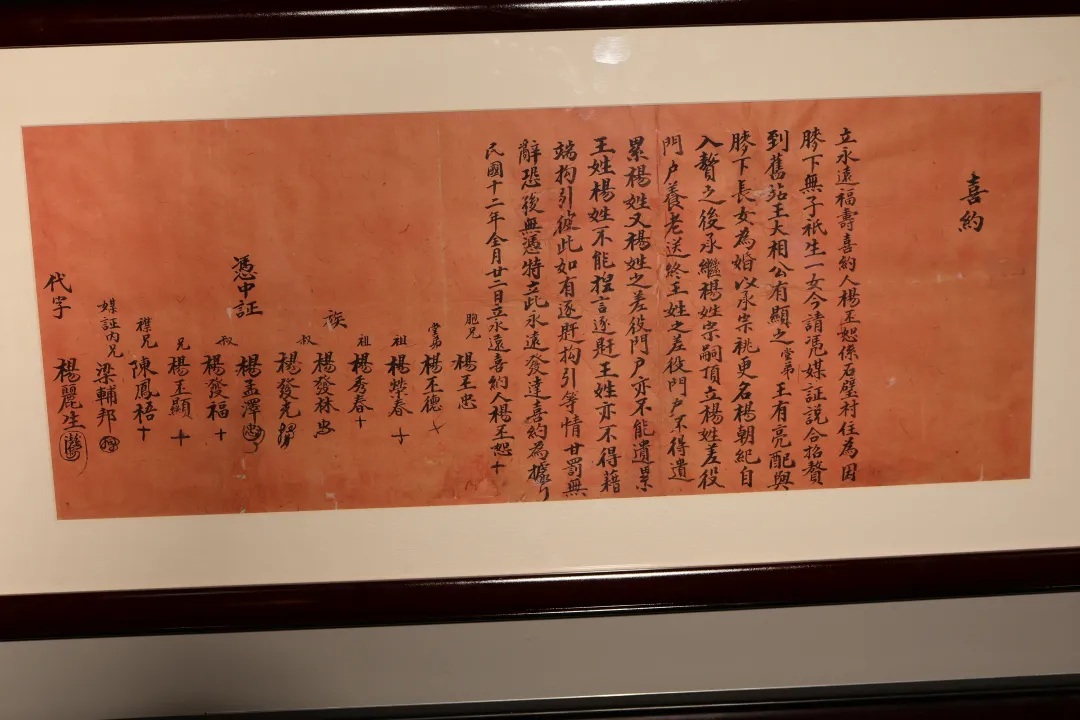 喜約
立永遠福壽喜約人楊丕恕係石壁村住為因
膝下無子祇生一女今請憑媒証説合招贅
到舊站王大相公有顯之堂弟王有亮配與
膝下長女為婚以承宗祧更名楊朝紀自
入贅之後承繼楊姓宗嗣頂立楊姓差役
門户養老送終王姓之差役門户不得遺
累楊姓又楊姓之差役門户亦不能遺累
王姓楊姓不能捏言逐趕王姓亦不得藉
端拘引彼此如有逐趕拘引等情甘罰無
辭恐後無憑特立此永遠發達喜約為據
民國十二年全月廿二日立永遠喜約人楊丕恕十
胞兄 楊丕忠
堂弟 楊丕德十
祖 楊崇春十
祖 楊秀春十
族 楊發林忠
叔 楊發光
憑中証 楊孟澤
叔 楊發福十
兄 楊丕顯十
襟兄 陳鳳梧十
媒証内兄 梁輔邦
代字 楊麗生